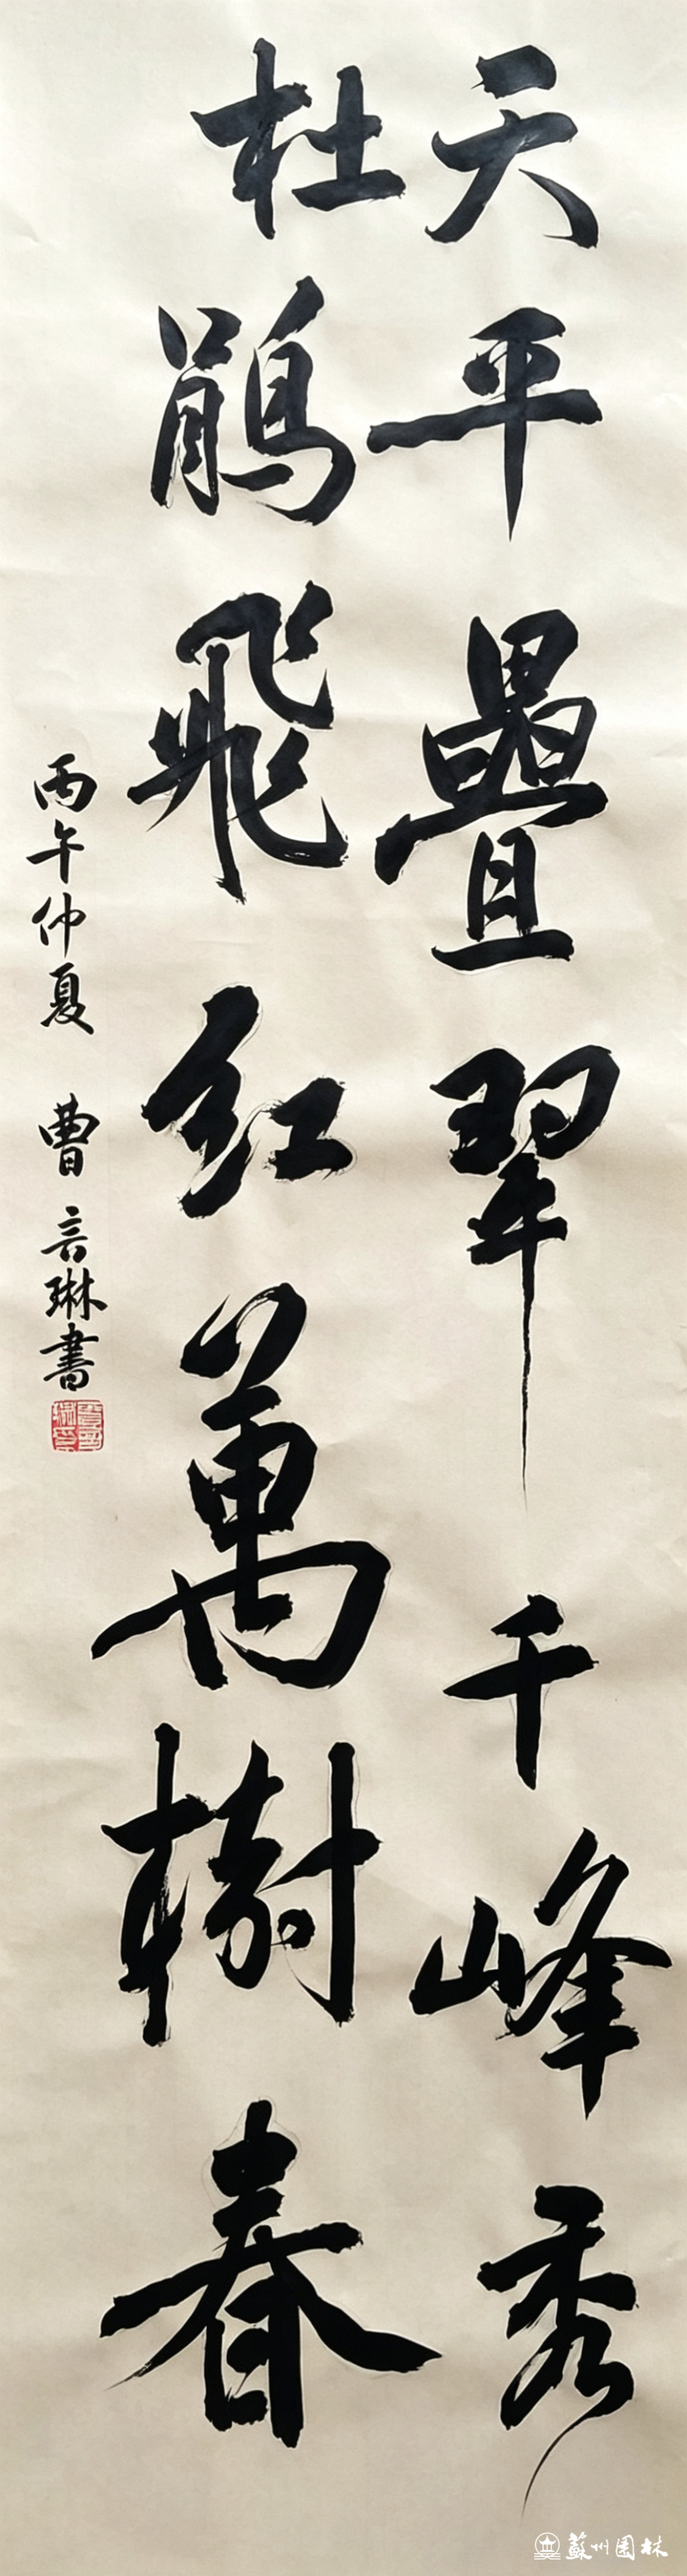 天平疊翠千峰秀
杜鵑飛紅萬樹春
丙午仲夏 曹言琳書
蘇州園林